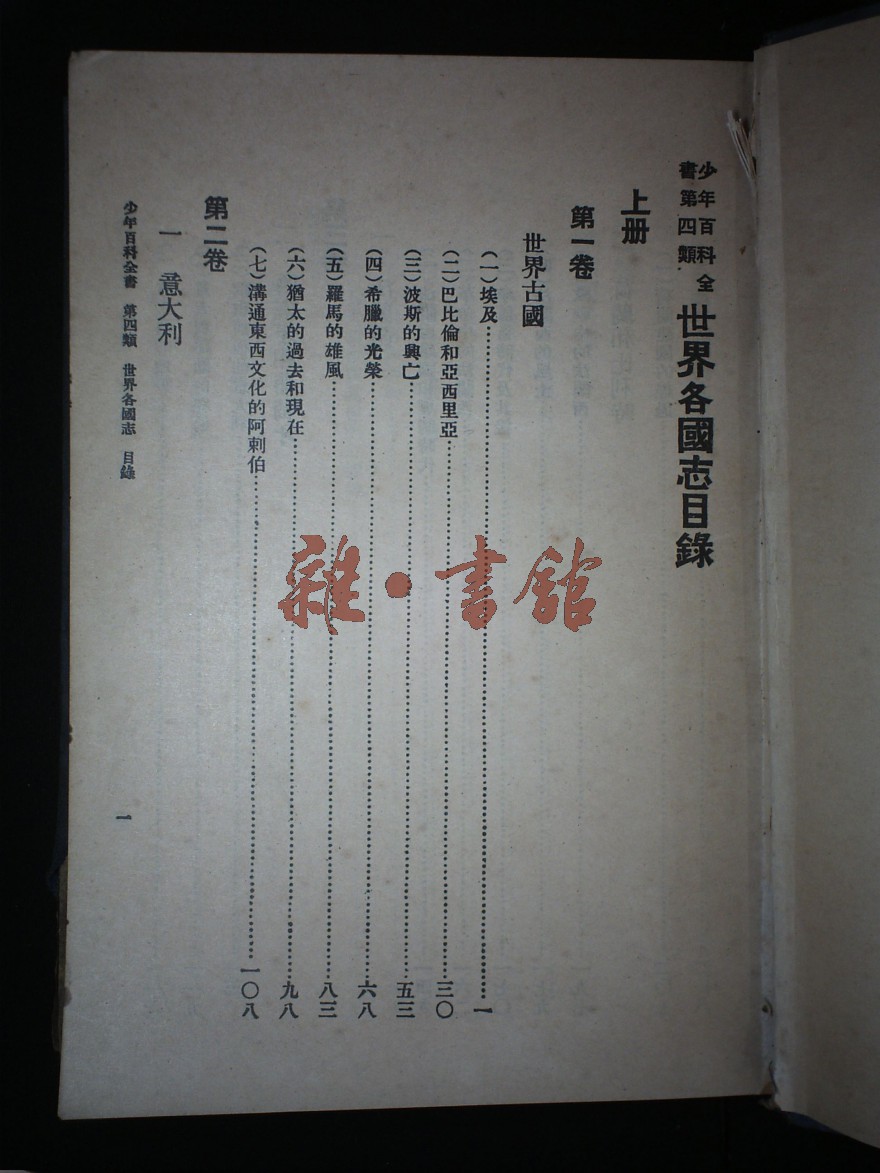 少年百科全
書第四類
世界各國志目錄
上册
第一卷
世界古國
(一)埃及……一
(二)巴比倫和亞西里亞……三〇
(三)波斯的興亡……五三
(四)希臘的光榮……六八
(五)羅馬的雄風……八三
(六)猶太的過去和現在……九八
(七)溝通東西文化的阿剌伯……一〇八
第二卷
一 意大利
少年百科全書 第四類 世界各國志 目錄 一
雜·書館